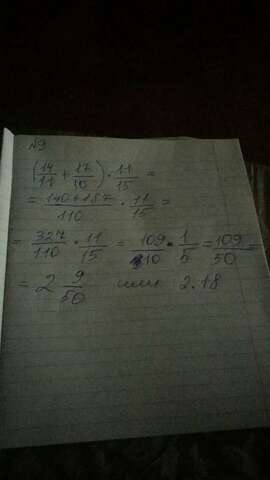 №9
(14/11 + 17/10) · 11/15 =
= 140+187/110 · 11/15 =
= 327/110 · 11/15 = 109/10 · 1/5 = 109/50 =
= 2 9/50 или 2.18